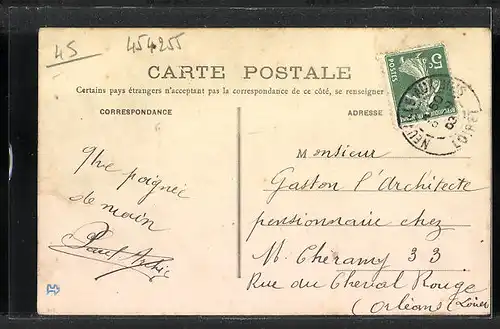 45
454255
CARTE POSTALE
Certains pays étrangers n'acceptant pas la correspondance de ce côté, se renseigner
CORRESPONDANCE
ADRESSE
5c
POSTES
LOIRET
Monsieur
Gaston l'Architecte
pensionnaire chez
M. Cheramy 33
Rue du Cheval Rouge
Orléans (Loiret
poignée
de main
Paul